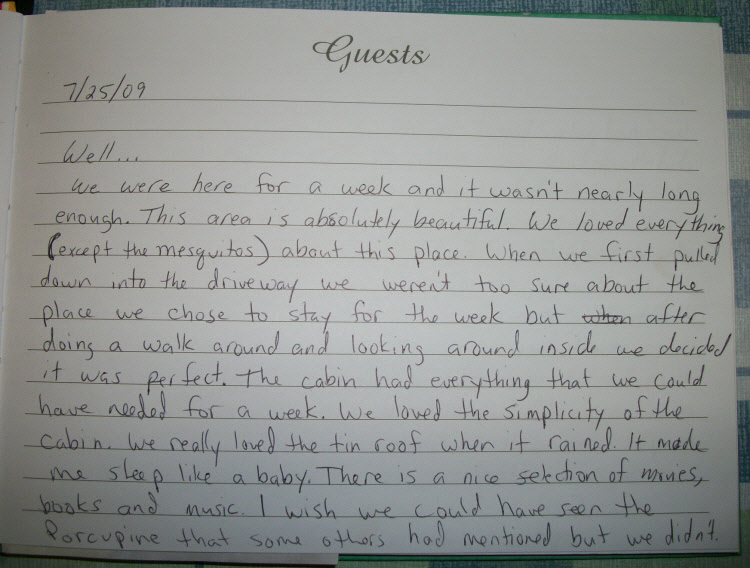 Guests
7/25/09
Well...
We were here for a week and it wasn't nearly long
enough. This area is absolutely beautiful. We loved everything
(except the mesquitos) about this place. When we first pulled
down into the driveway we weren't too sure about the
place we chose to stay for the week but when after
doing a walk around and looking around inside we decided
it was perfect. The cabin had everything that we could
have needed for a week. We loved the simplicity of the
cabin. We really loved the tin roof when it rained. It made
me sleep like a baby. There is a nice selection of movies,
books and music. I wish we could have seen the
Porcupine that some others had mentioned but we didn't.